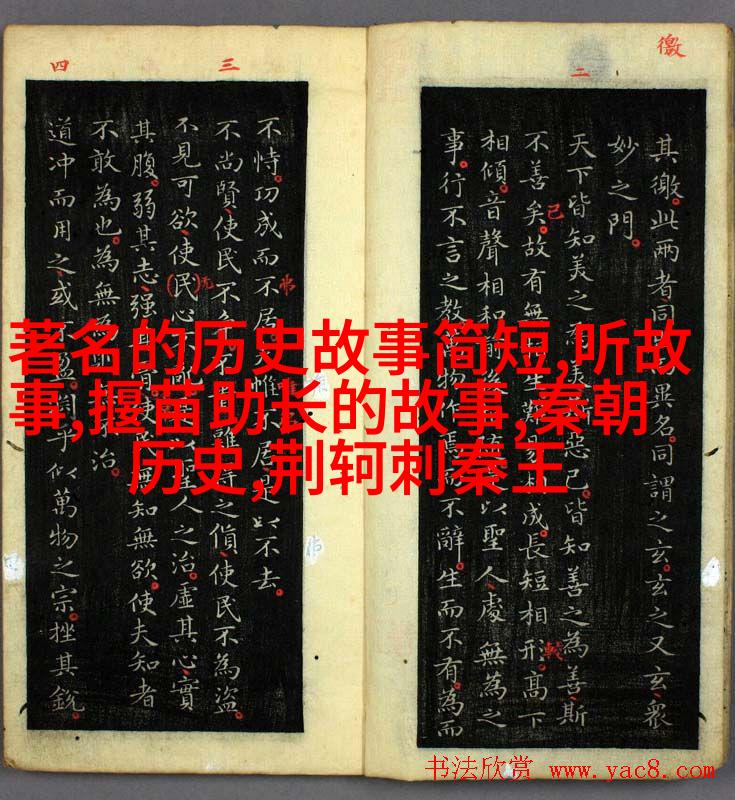 著名的历史故事简短,听故
事,揠苗助长的故事,秦朝
历史,荆轲刺秦王
徼
二
其徼。此兩者同異名。同謂之玄。玄之又玄。眾
妙之門。
天下皆知美之惡已。皆知善之為善斯
不善矣。故有無生難易成。長短相形。高下
已
較
相傾。音聲相和以聖人處無為之
事。行不言之教物作焉不辭。生而不有。為而
三
四
不恃。功成而不居惟不居是以不去。
不尚賢使民不之貨使民不為盜。
不見可欲使民心聖人之治。虛其心實
其腹。弱其志。強其使無知無欲。使夫知者
不敢為也。為無為治。
道冲而用之。或乎似萬物之宗。挫其銳。
书法欣赏 www.yac8.com